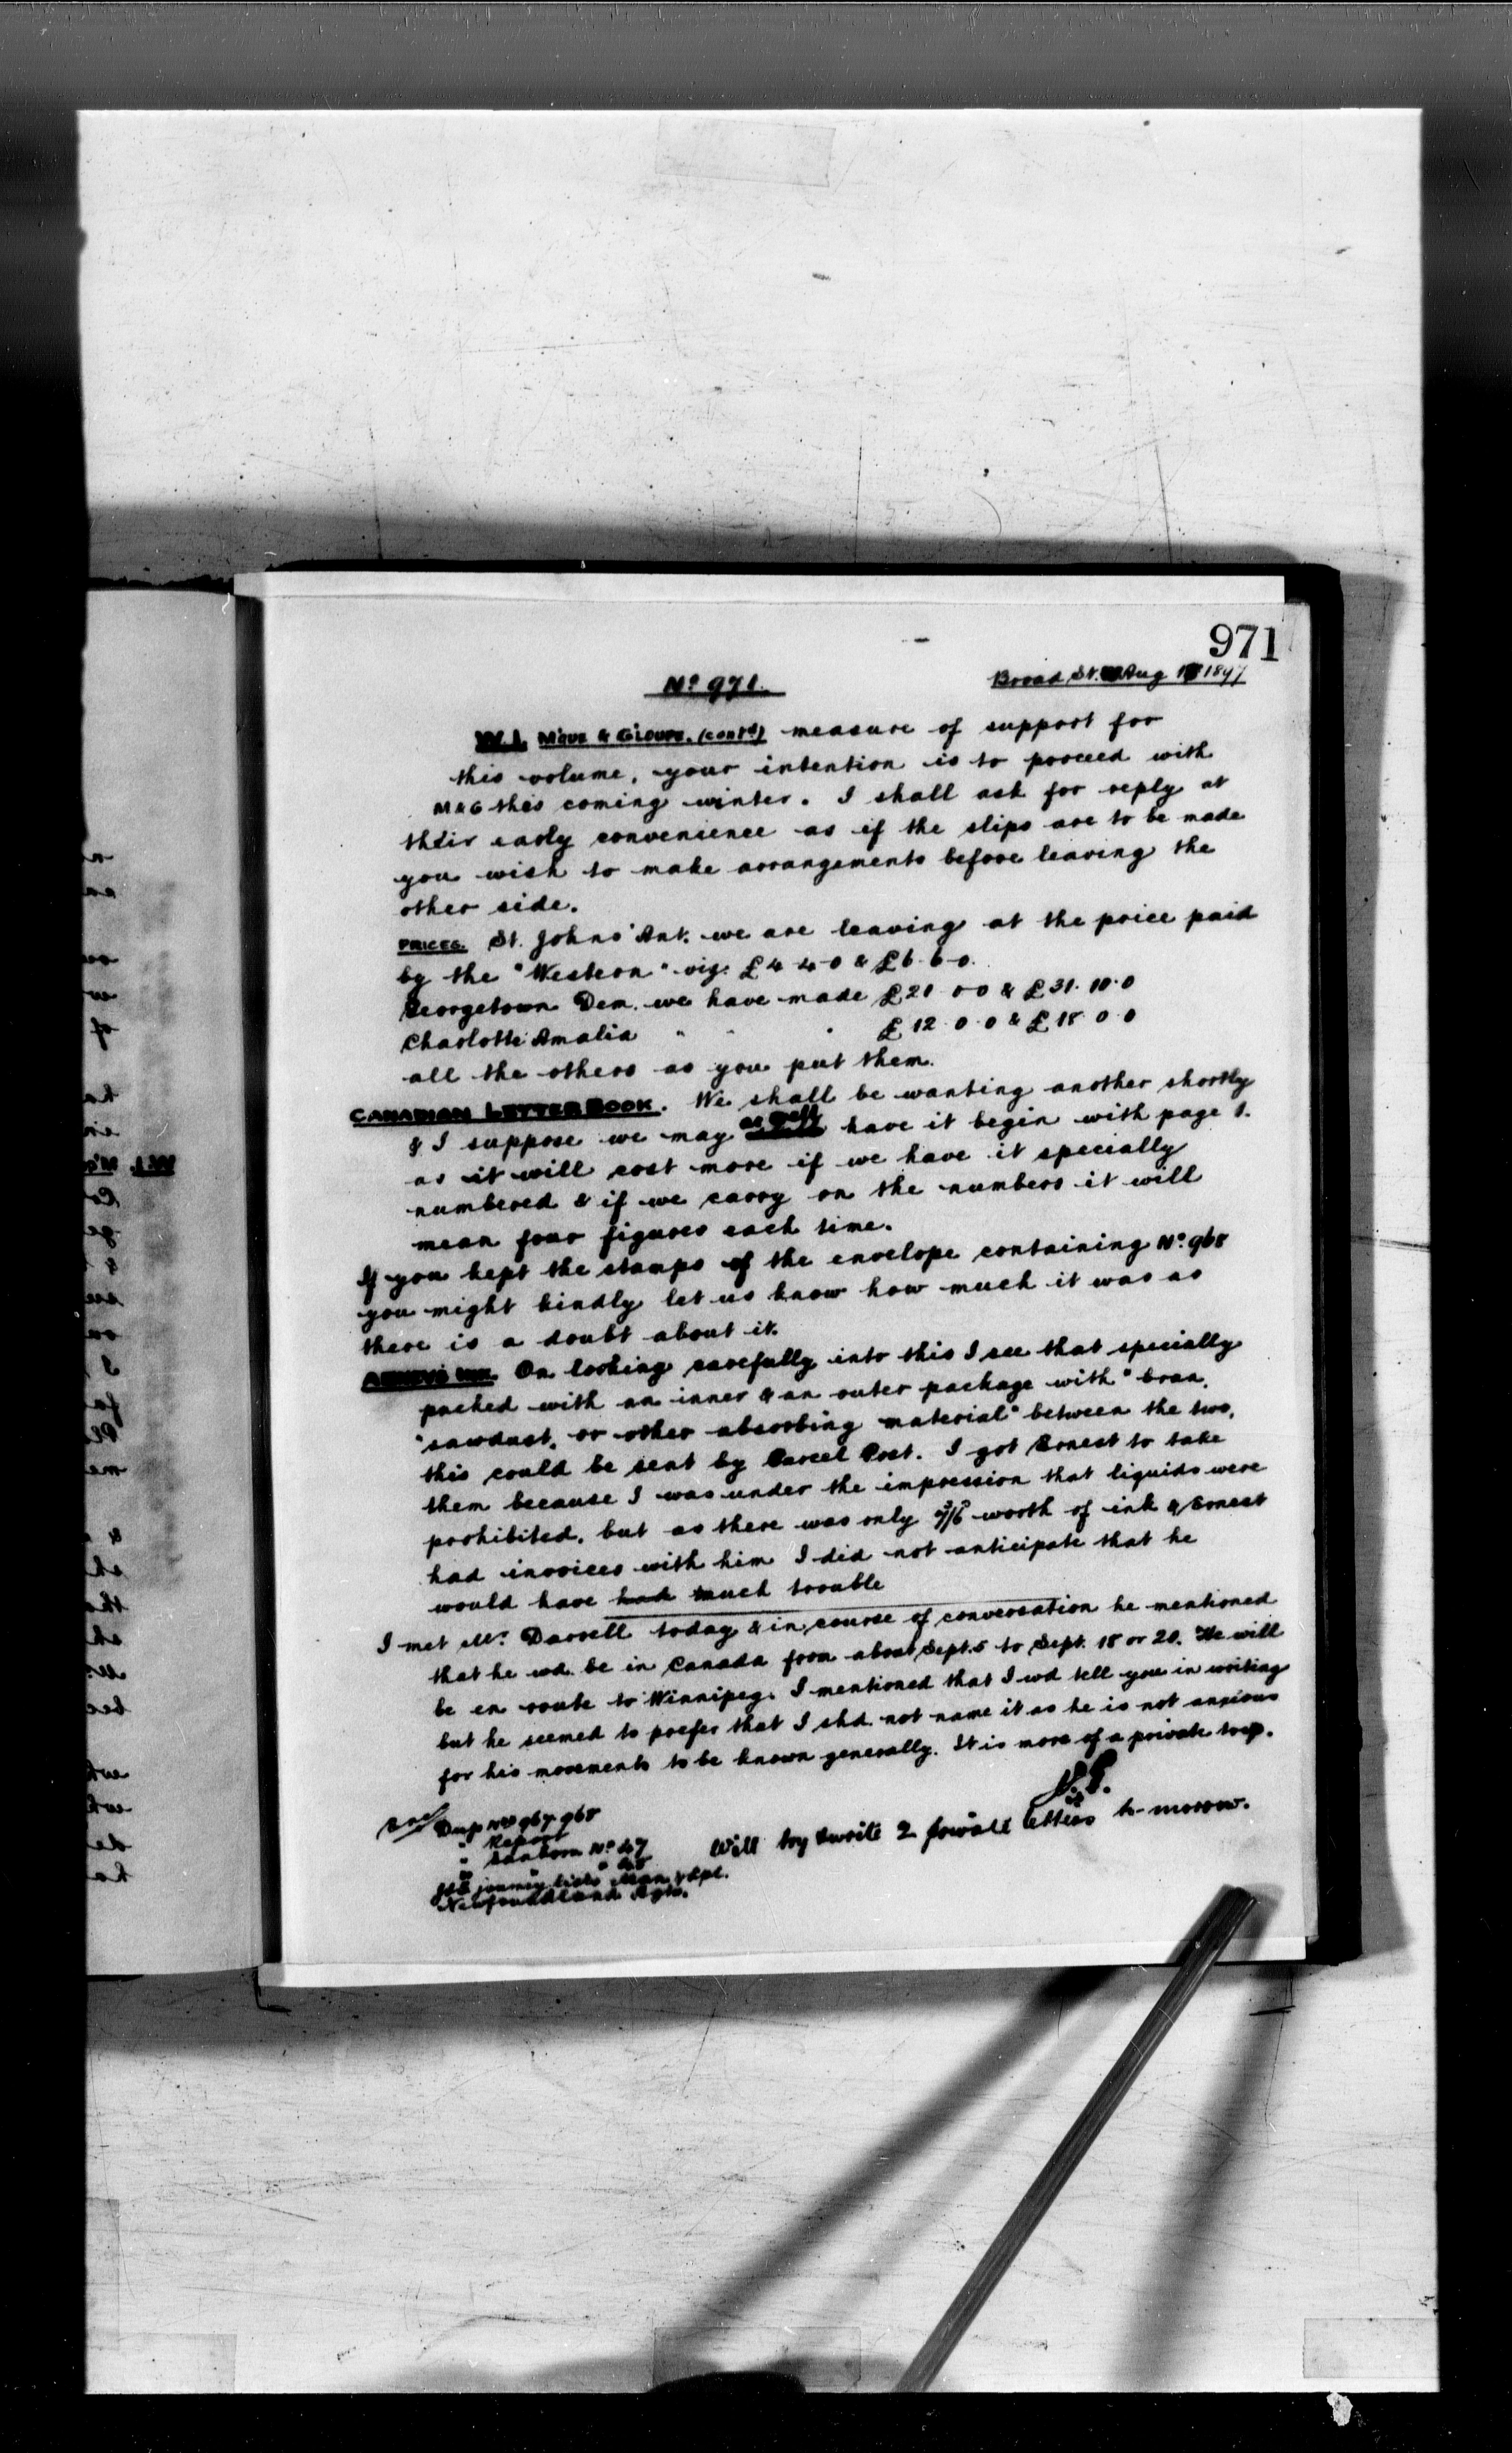 971
No 971.
Broad St. Aug 1897
W.I. (contd) measure of support for
this volume, your intention is to proceed with
M & G this coming winter. I shall ask for reply at
their early convenience as if the slips are to be made
you wish to make arrangements before leaving the
other side.
PRICES. St. Johns Ant. we are leaving at the price paid
by the "Western" viz. £4-4-0 & £6-6-0.
Georgetown Dem. we have made £21-0-0 & £31.10.0
Charlotte Amalia " " " £12.0.0 & £18.0.0
all the others as you put them.
CANADIAN LETTER BOOK. We shall be wanting another shortly
& I suppose we may as well have it begin with page 1.
as it will cost more if we have it specially
numbered & if we carry on the numbers it will
mean four figures each time.
If you kept the stamps of the envelope containing No. 968
you might kindly let us know how much it was as
there is a doubt about it.
INK. On looking carefully into this I see that specially
packed with an inner & an outer package with "bran,
"sawdust, or other absorbing material" between the two,
this could be sent by Parcel Post. I got Ernest to take
them because I was under the impression that liquids were
prohibited, but as there was only worth of ink & Ernest
had invoices with him I did not anticipate that he
would have had much trouble
I met Mr. Darrell today & in course of conversation he mentioned
that he wd. be in Canada from about Sept. 5 to Sept. 18 or 20. He will
be en route to Winnipeg. I mentioned that I wd tell you in writing
but he seemed to prefer that I shd. not name it as he is not anxious
for his movements to be known generally. It is more of a private trip.
Dup Nos 967-968
" Report
" Sanborn No 47
" " 48
journey lists Man &
Newfoundland Agts.
Will try & write 2 letters to-morrow.